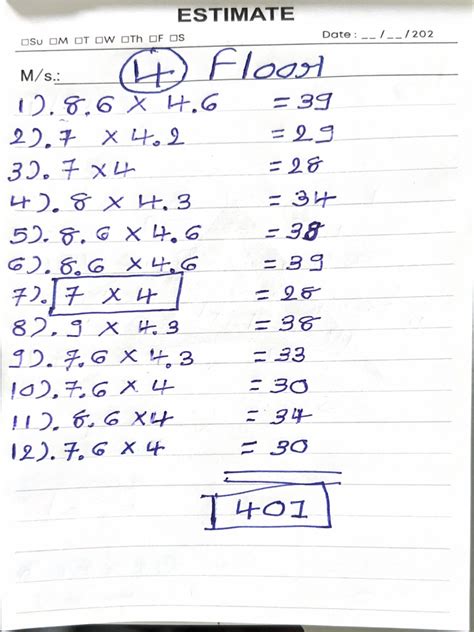 ESTIMATE
□Su □M □T □W □Th □F □S Date : __ /__ /202
M/s.: 4 Floor
1). 8.6 × 4.6 = 39
2). 7 × 4.2 = 29
3). 7 × 4 = 28
4). 8 × 4.3 = 34
5). 8.6 × 4.6 = 38
6). 8.6 × 4.6 = 39
7). 7 × 4 = 28
8). 9 × 4.3 = 38
9). 7.6 × 4.3 = 33
10). 7.6 × 4 = 30
11). 8.6 × 4 = 34
12). 7.6 × 4 = 30
401